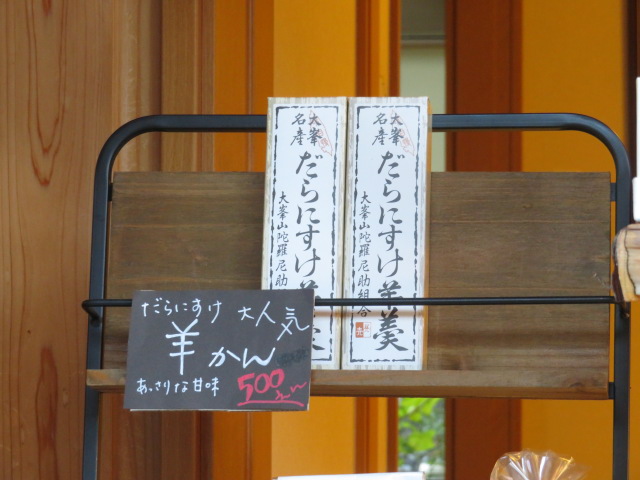 大峯
名産
だらにすけ
大峯山陀羅尼助
大峯
名産
だらにすけ羊羹
大峯山陀羅尼助組合
だらにすけ 大人気
羊かん
あっさりな甘味 500えん